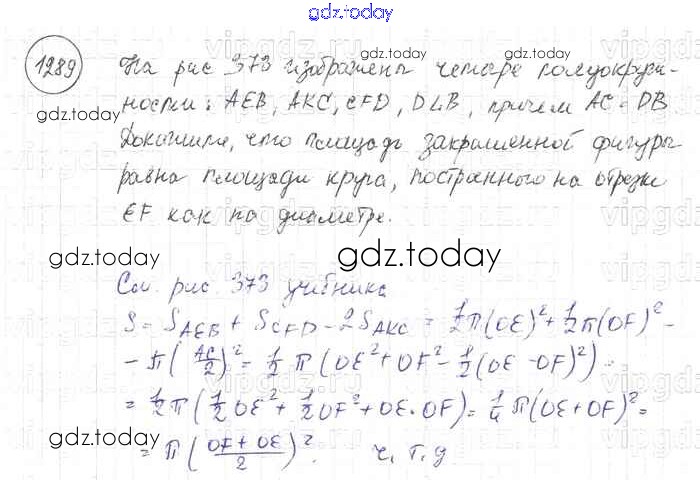 gdz.today
1289 На рис 373 изображены четыре полуокруж-
ности: AEB, AKC, CFD, DLB, причем AC=DB
Докажите, что площадь закрашенной фигуры
равна площади круга, построенного на отрезке
EF как на диаметре.
gdz.today
gdz.today
gdz.today
gdz.today
gdz.today
gdz.today
См. рис. 373 учебника
S = S_AEB + S_CFD - 2S_AKC = 1/2 π(OE)² + 1/2 π(OF)² -
- π(AC/2)² = 1/2 π(OE² + OF² - 1/2(OE - OF)²) =
= 1/2 π(1/2 OE² + 1/2 OF² + OE·OF) = 1/4 π(OE+OF)² =
= π((OF + OE)/2)². ч. т. д
gdz.today
gdz.today
gdz.today
gdz.today